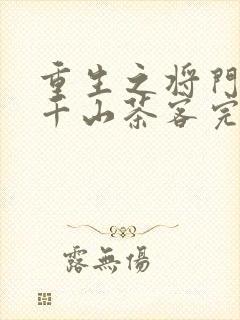 重生之将門
千山茶客完
露無傷